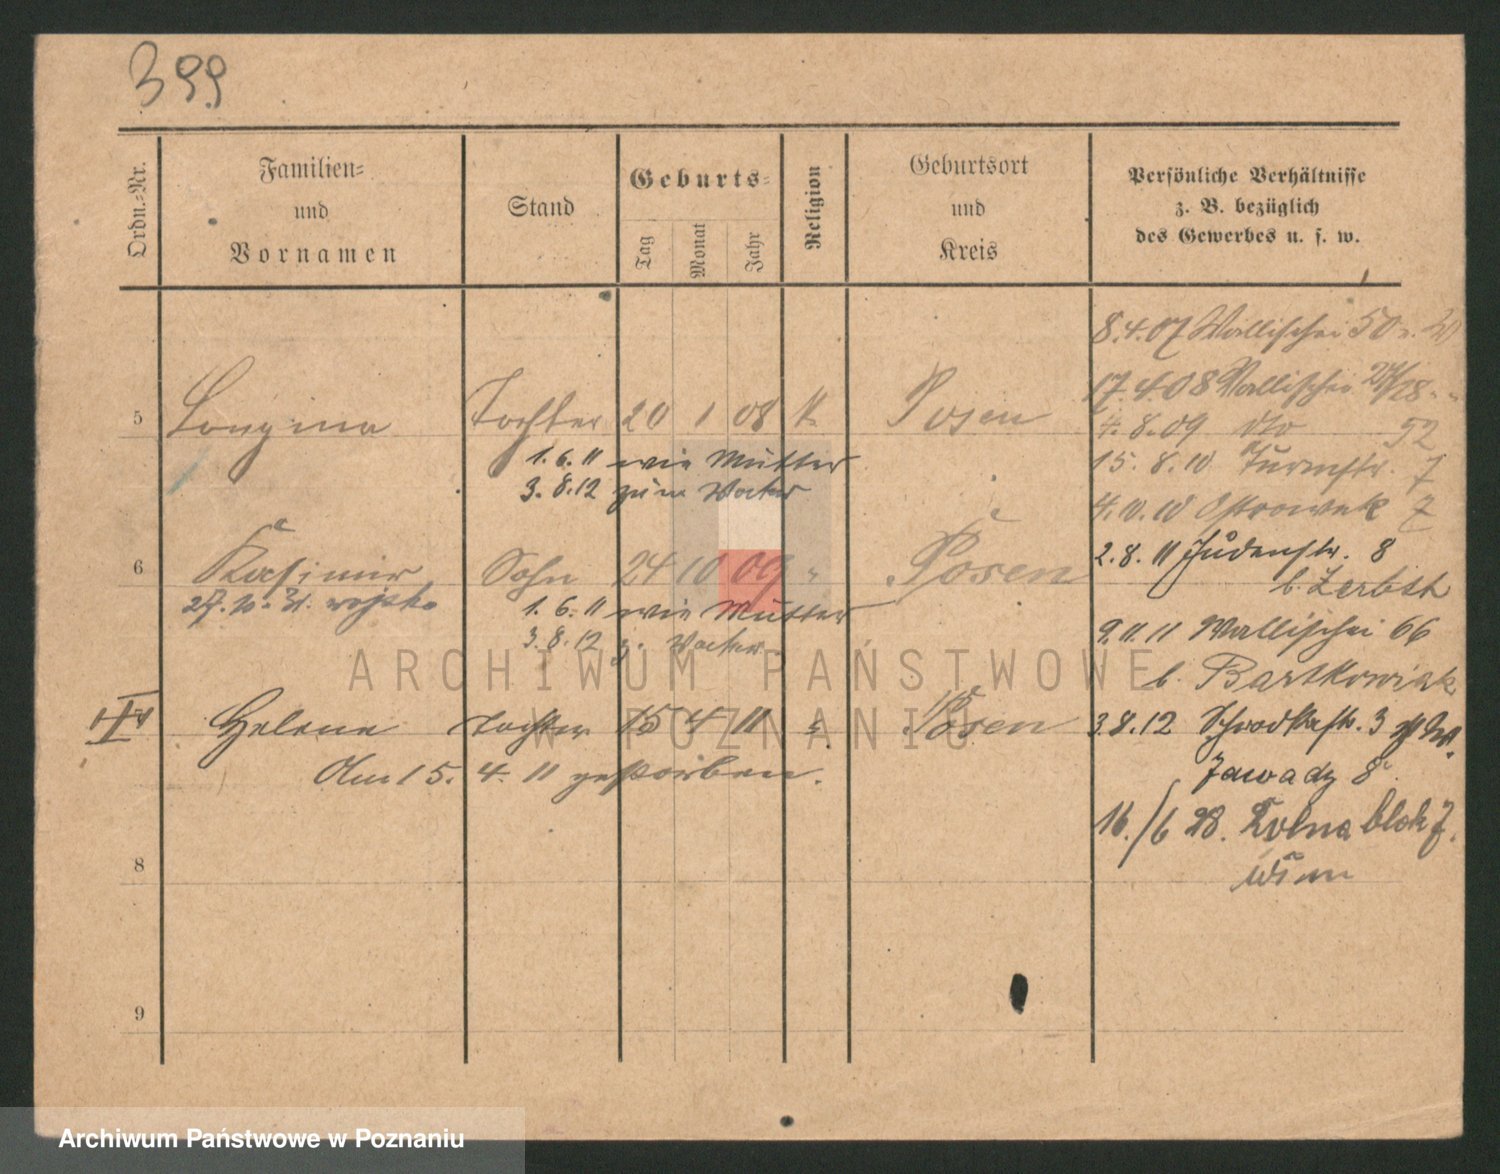 399
Ordn.-Nr.
Familien-
und
Vornamen
Stand
Geburts-
Tag
Monat
Jahr
Religion
Geburtsort
und
Kreis
Persönliche Verhältnisse
z. B. bezüglich
des Gewerbes u. s. w.
8.4.07 Wallischei 50
17.4.08 Wallischei 27/28
5 Longina Tochter 20 1 08 k. Posen
4.8.09 dto 52
1.6.11 wie Mutter
15.8.10 Turmstr. 7
3.8.12 zum Vater
4.10.10 Ostrowek 7
2.8.11 Judenstr. 8
6 Kasimir Sohn 24 10 09 " Posen
b. Zerbst
27.10.31. wojsko
1.6.11 wie Mutter
9.11.11 Wallischei 66
3.8.12 z. Vater
b. Bartkowiak
Helene Tochter 15 4 11 Posen
3.8.12 Schrodkastr. 3
Am 15. 4. 11 gestorben.
Zawady 8
16./6 28. Wolna blok 7.
8
9
ARCHIWUM PAŃSTWOWE
W POZNANIU
Archiwum Państwowe w Poznaniu